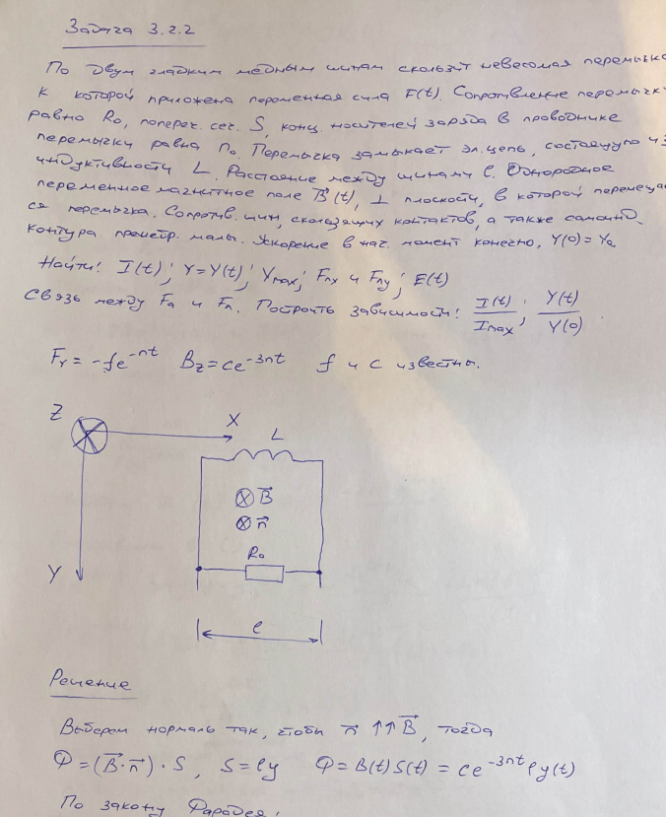 Задача 3.2.2
По двум гладким медным шинам скользит невесомая перемычка
к которой приложена переменная сила F(t). Сопротивление перемычки
равно R₀, попереч. сеч. S, конц. носителей заряда в проводнике
перемычки равна n₀. Перемычка замыкает эл. цепь, состоящую из
индуктивности L. Расстояние между шинами l. Однородное
переменное магнитное поле B⃗(t), ⊥ плоскости, в которой перемещает
ся перемычка. Сопротив. шин, скользящих контактов, а также самоинд.
контура пренебр. малы. Ускорение в нач. момент конечно, Y(0) = Y₀
Найти: I(t); Y=Y(t); Ymax; Fлx и Fлy; E(t)
Связь между Fа и Fл. Построить зависимости: I(t)/Imax; Y(t)/Y(0)
Fy = -fe^-nt Bz = ce^-3nt f и c известны.
Z
X
L
⊗ B⃗
⊗ n⃗
R₀
Y
l
Решение
Выберем нормаль так, чтобы n⃗ ↑↑ B⃗, тогда
Φ = (B⃗·n⃗)·S, S = ly Φ = B(t)S(t) = ce^-3nt ly(t)
По закону Фарадея: